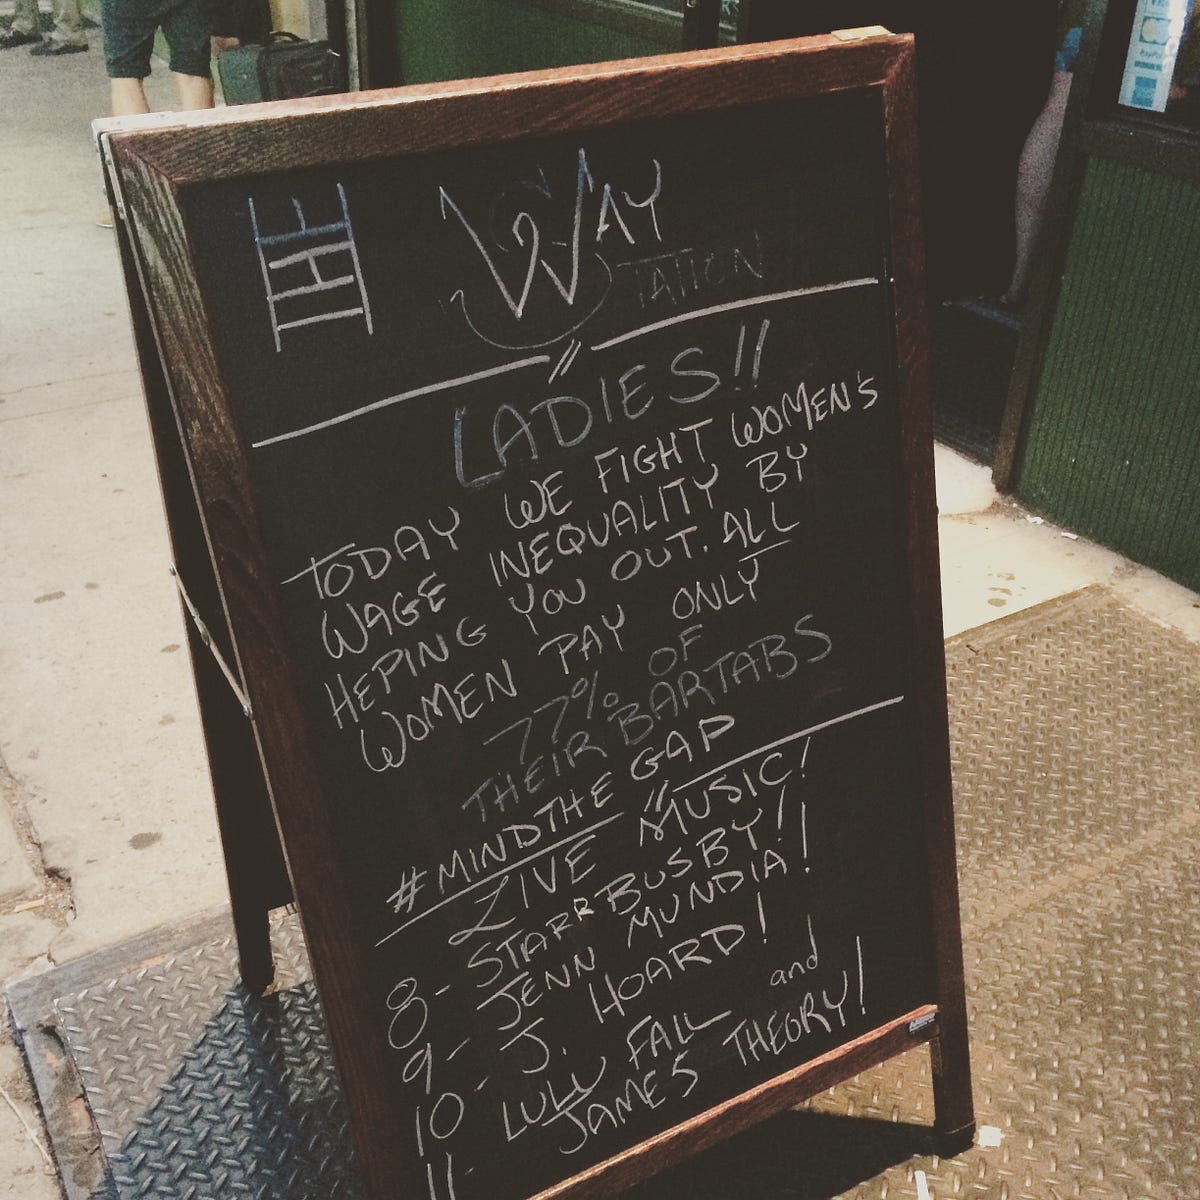 THE WAY
STATION
LADIES!!
TODAY WE FIGHT WOMEN'S
WAGE INEQUALITY BY
HEPING YOU OUT. ALL
WOMEN PAY ONLY
77% OF
THEIR BARTABS
#MINDTHE GAP
LIVE MUSIC!
8- STARR BUSBY!
9- JENN MUNDIA!
10- J. HOARD!
11- LULU FALL and
JAMES THEORY!